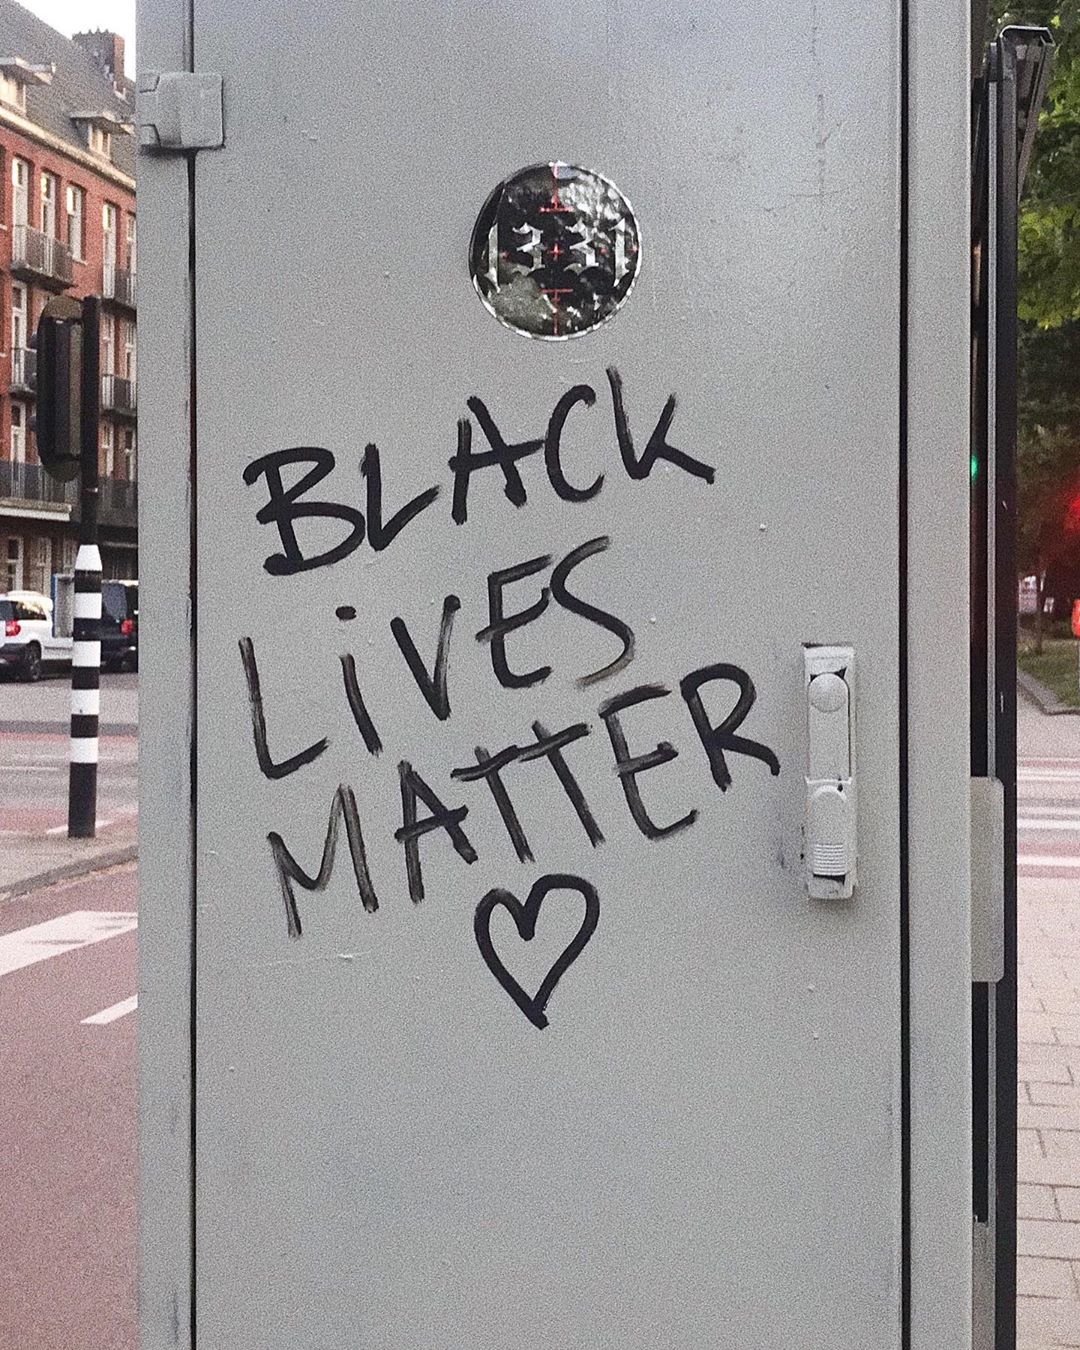 1331
BLACK
LiVES
MATTER